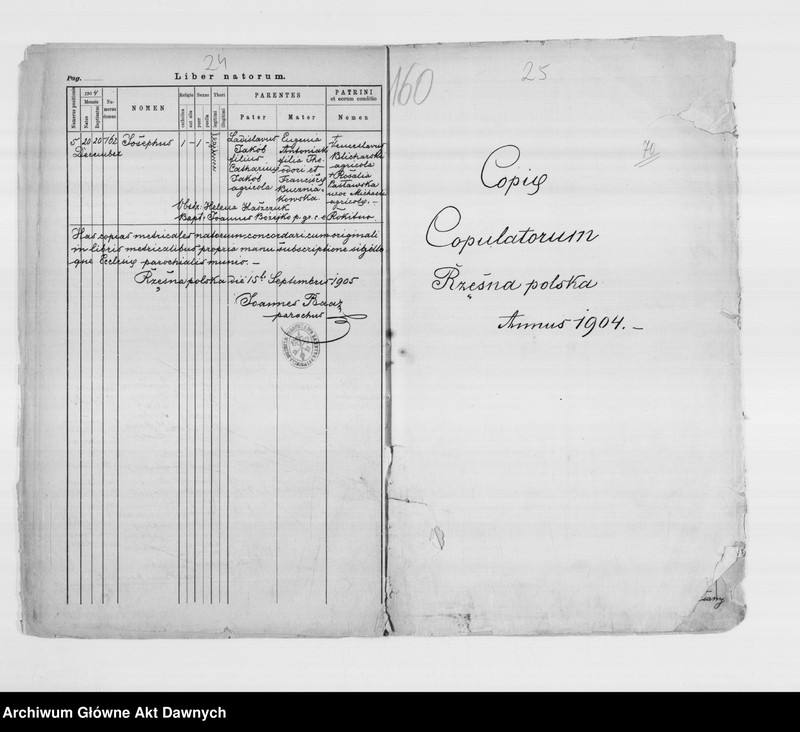 24
Pag.
Liber natorum.
Numerus positionis
1904
Mensis
Natus
Baptisatus
Numerus domus
NOMEN
Religio
catholica
aut alia
Sexus
puer
puella
Thori
legitimi
illegitimi
PARENTES
Pater
Mater
PATRINI
et eorum conditio
Nomen
5 20 20 162 Josephus 1 – 1 –
December
Ladislaus
Jakób
filius
Catharinę
Jakób
agricola
Eugenia
Antoniak
filia The-
odori et
Franciscę
Buernia-
kowska.
Venceslaus
Blicharski
agricola
+ Rosalia
Łastawska
uxor Michaelis
agricolę. –
Obstr: Helena Haszczuk
Bapt: Joannes p. gr. c. e Rokitno
Has copias metricales natorum concordari cum originali
in libris metricalibus propria manu subscriptione sigillo-
que Ecclesię parochialis munio. –
Rzęsna polska die 15t. Septembris 1905
Joannes Baaz
parochus
160
25
Copię
Copulatorum
Rzęsna polska
Annus 1904. –
Archiwum Główne Akt Dawnych